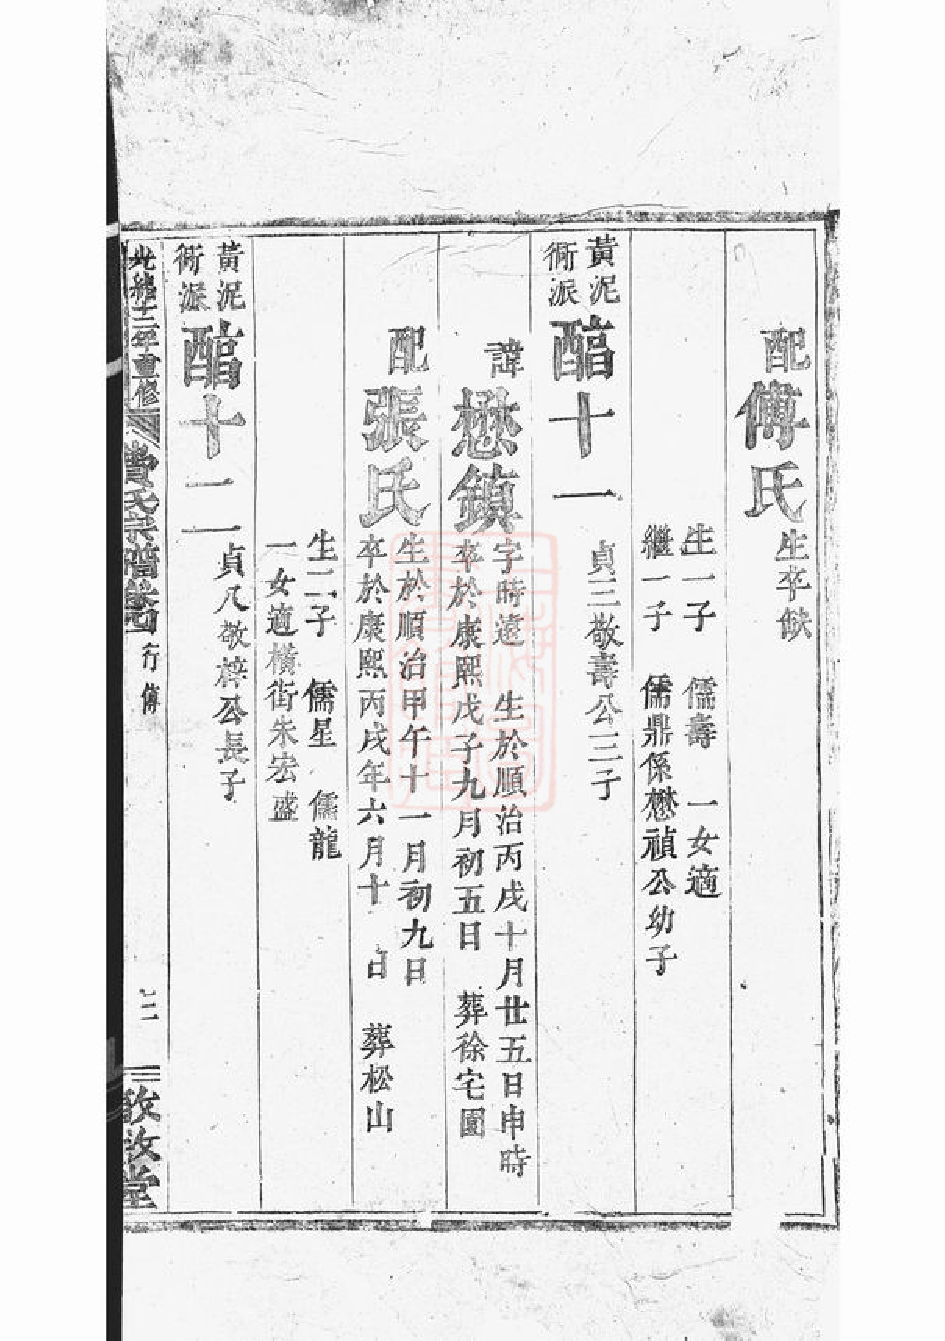 配傅氏生卒缺
生一子 儒壽 一女適
繼一子 儒鼎係懋禎公幼子
黃泥
衖派
酷十一
貞三敬壽公三子
諱懋鎮
字時遠 生於順治丙戌十月廿五日申時
卒於康熙戊子九月初五日 葬徐宅園
配張氏
生於順治甲午十一月初九日
卒於康熙丙戌年六月十 日 葬松山
生二子 儒星 儒龍
一女適橫街朱宏盛
黃泥
衖派
酷十二
貞八敬梓公長子
光緒十二年重修
費氏宗譜卷
行傳
敦敘堂